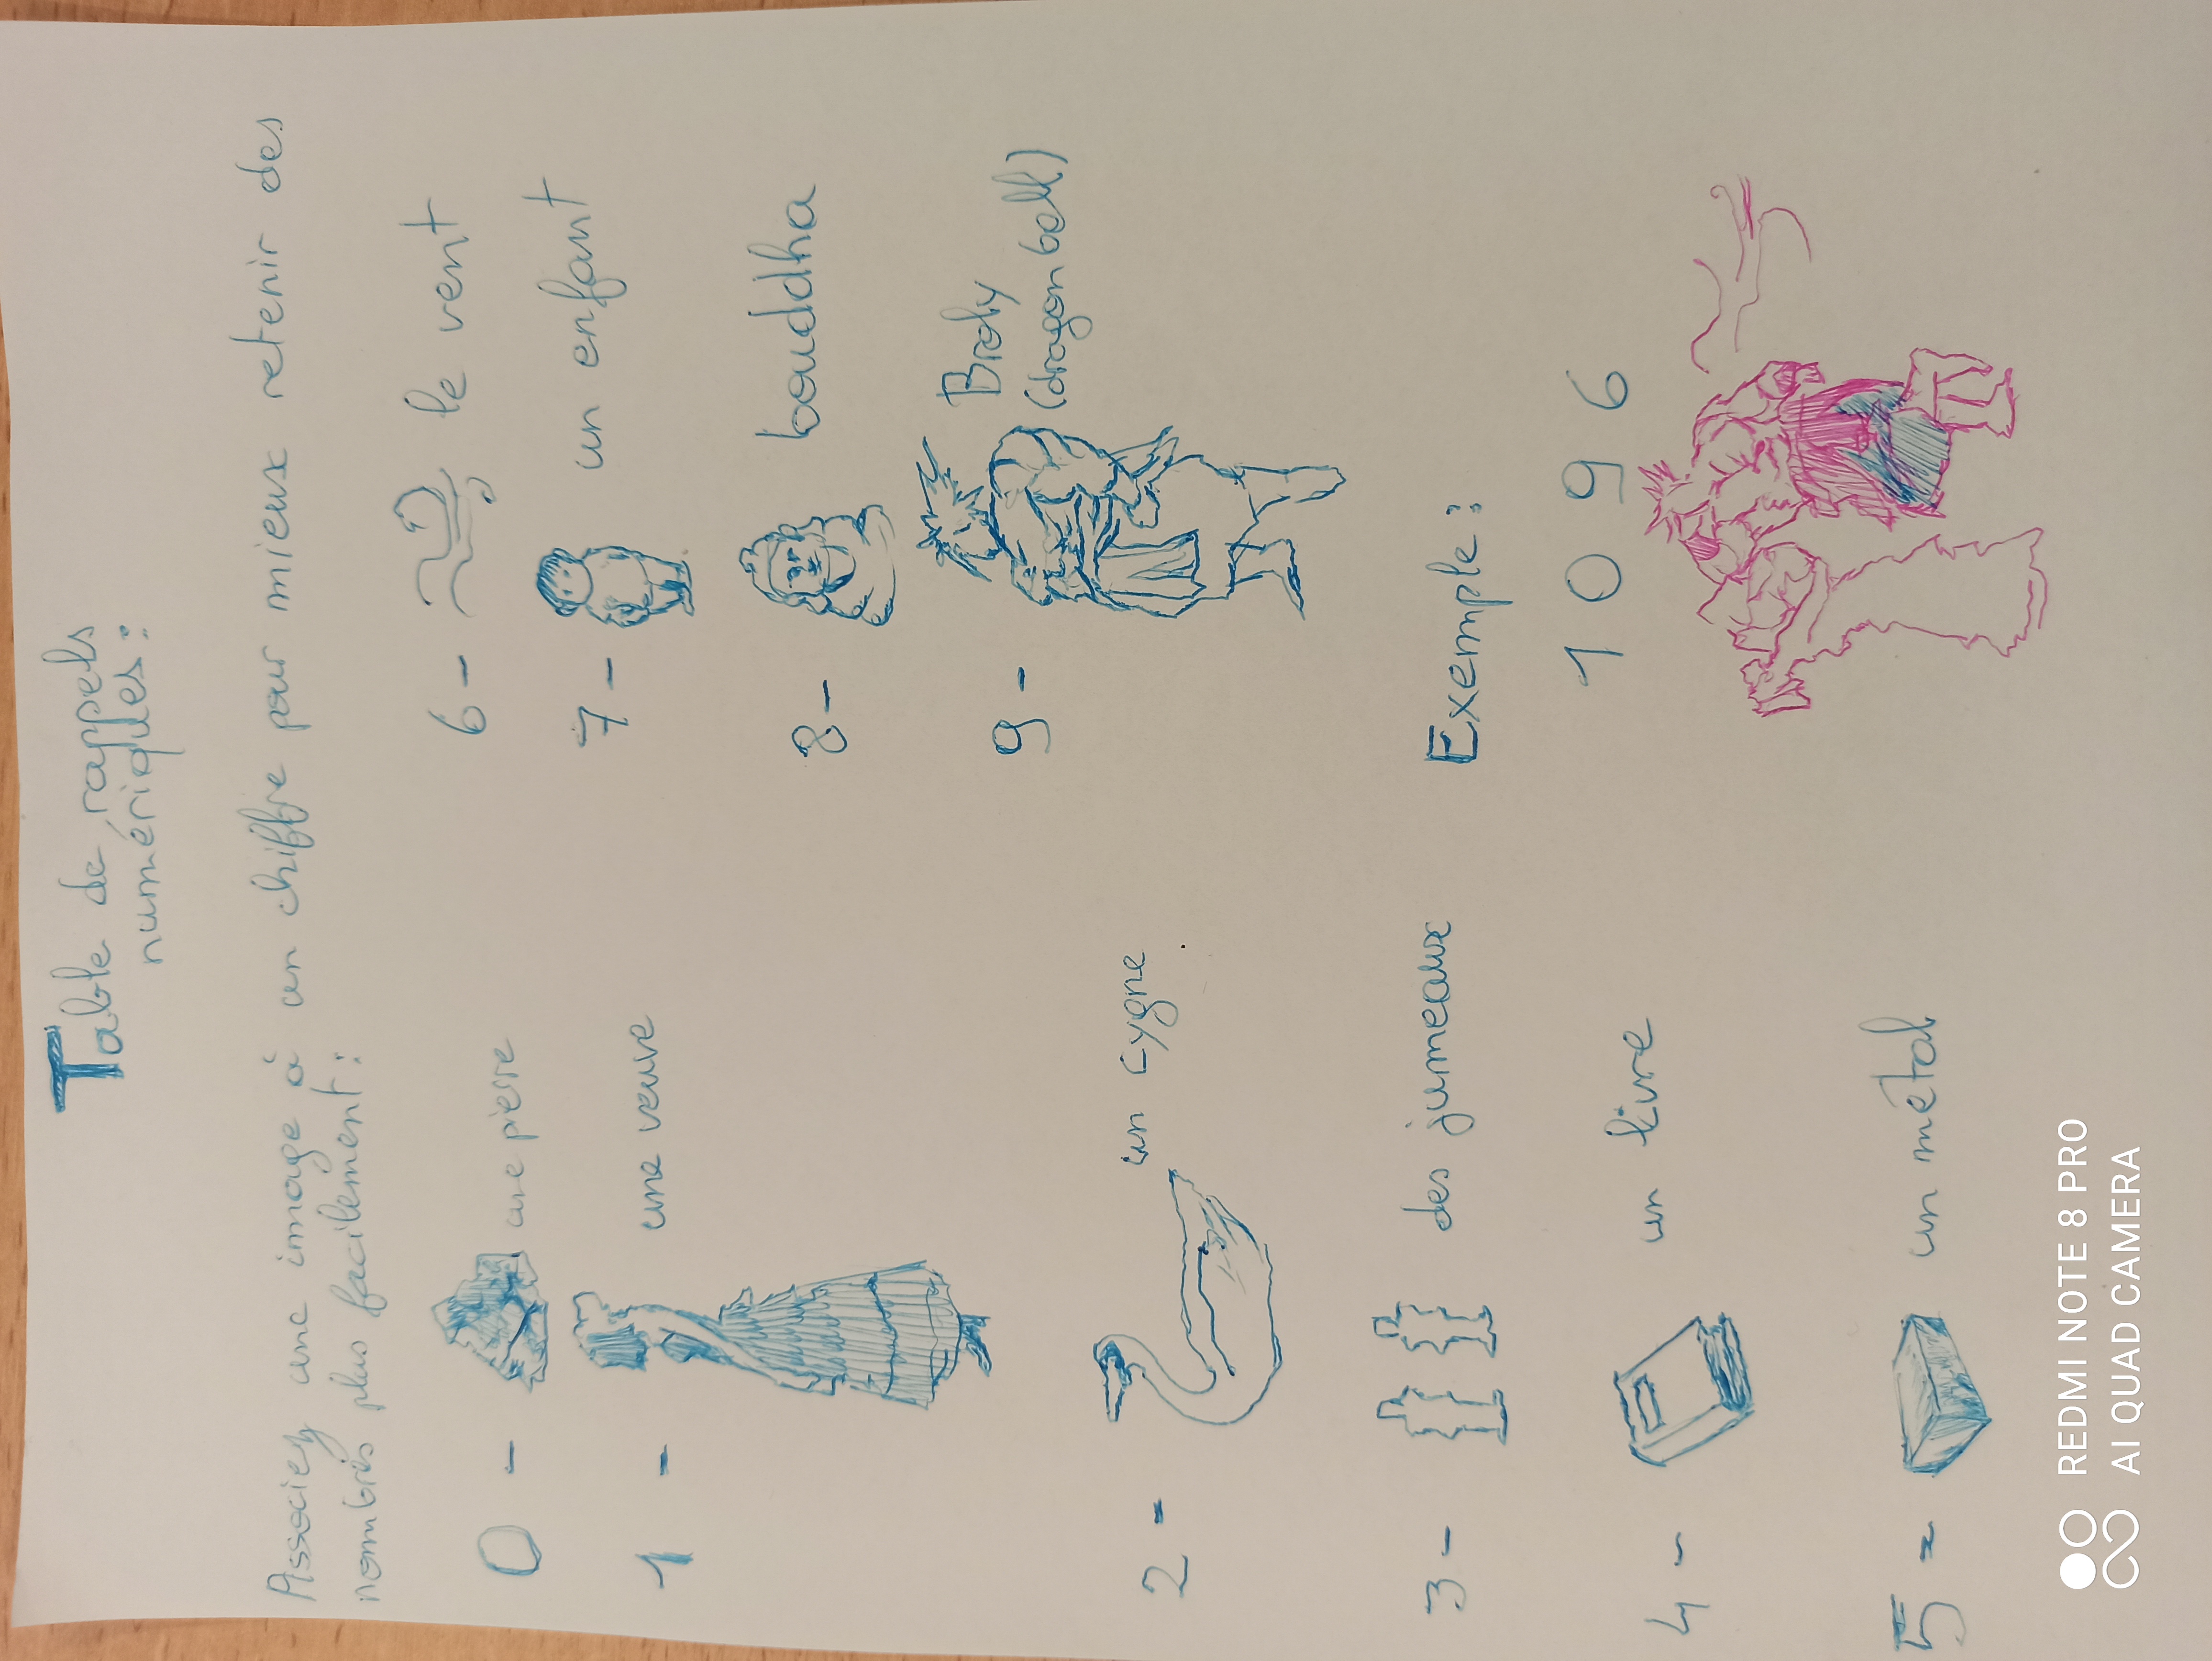 Table de rappels
numériques :
Associez une image à un chiffre pour mieux retenir des
nombres plus facilement :
0 - une pierre
1 - une veuve
2 - un cygne
3 - des jumeaux
4 - un livre
5 - un métal
6 - le vent
7 - un enfant
8 - bouddha
9 - Broly
(dragon ball)
Exemple :
1 0 9 6
REDMI NOTE 8 PRO
AI QUAD CAMERA